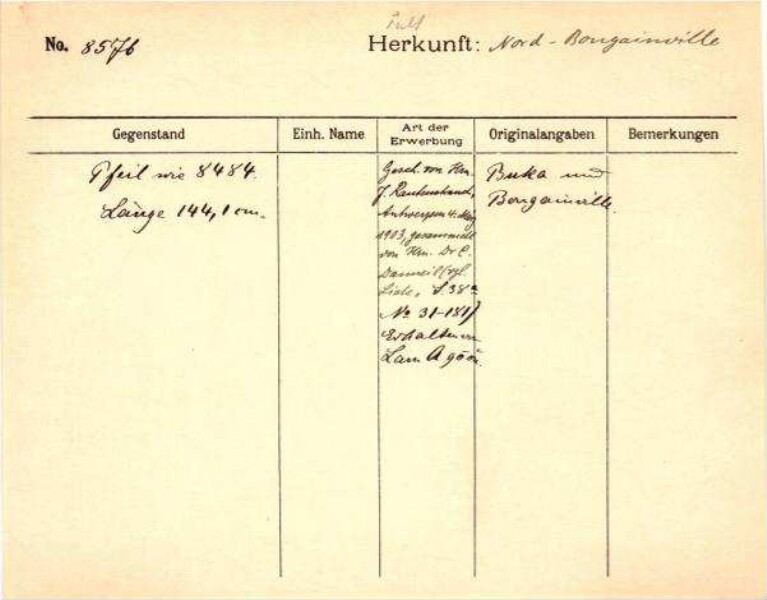 No. 8576
Herkunft: Nord-Bougainville
Gegenstand
Einh. Name
Art der Erwerbung
Originalangaben
Bemerkungen
Pfeil wie 8484.
Länge 144,1 cm.
Gesch. von Hrn.
J. Rautenstrauch,
Antwerpen 4. May
1903, gesammelt
von Hrn. Dr C.
Danneil (vgl.
Liste, S. 38a
No 31-181)
Erhalten
Buka und
Bougainville.